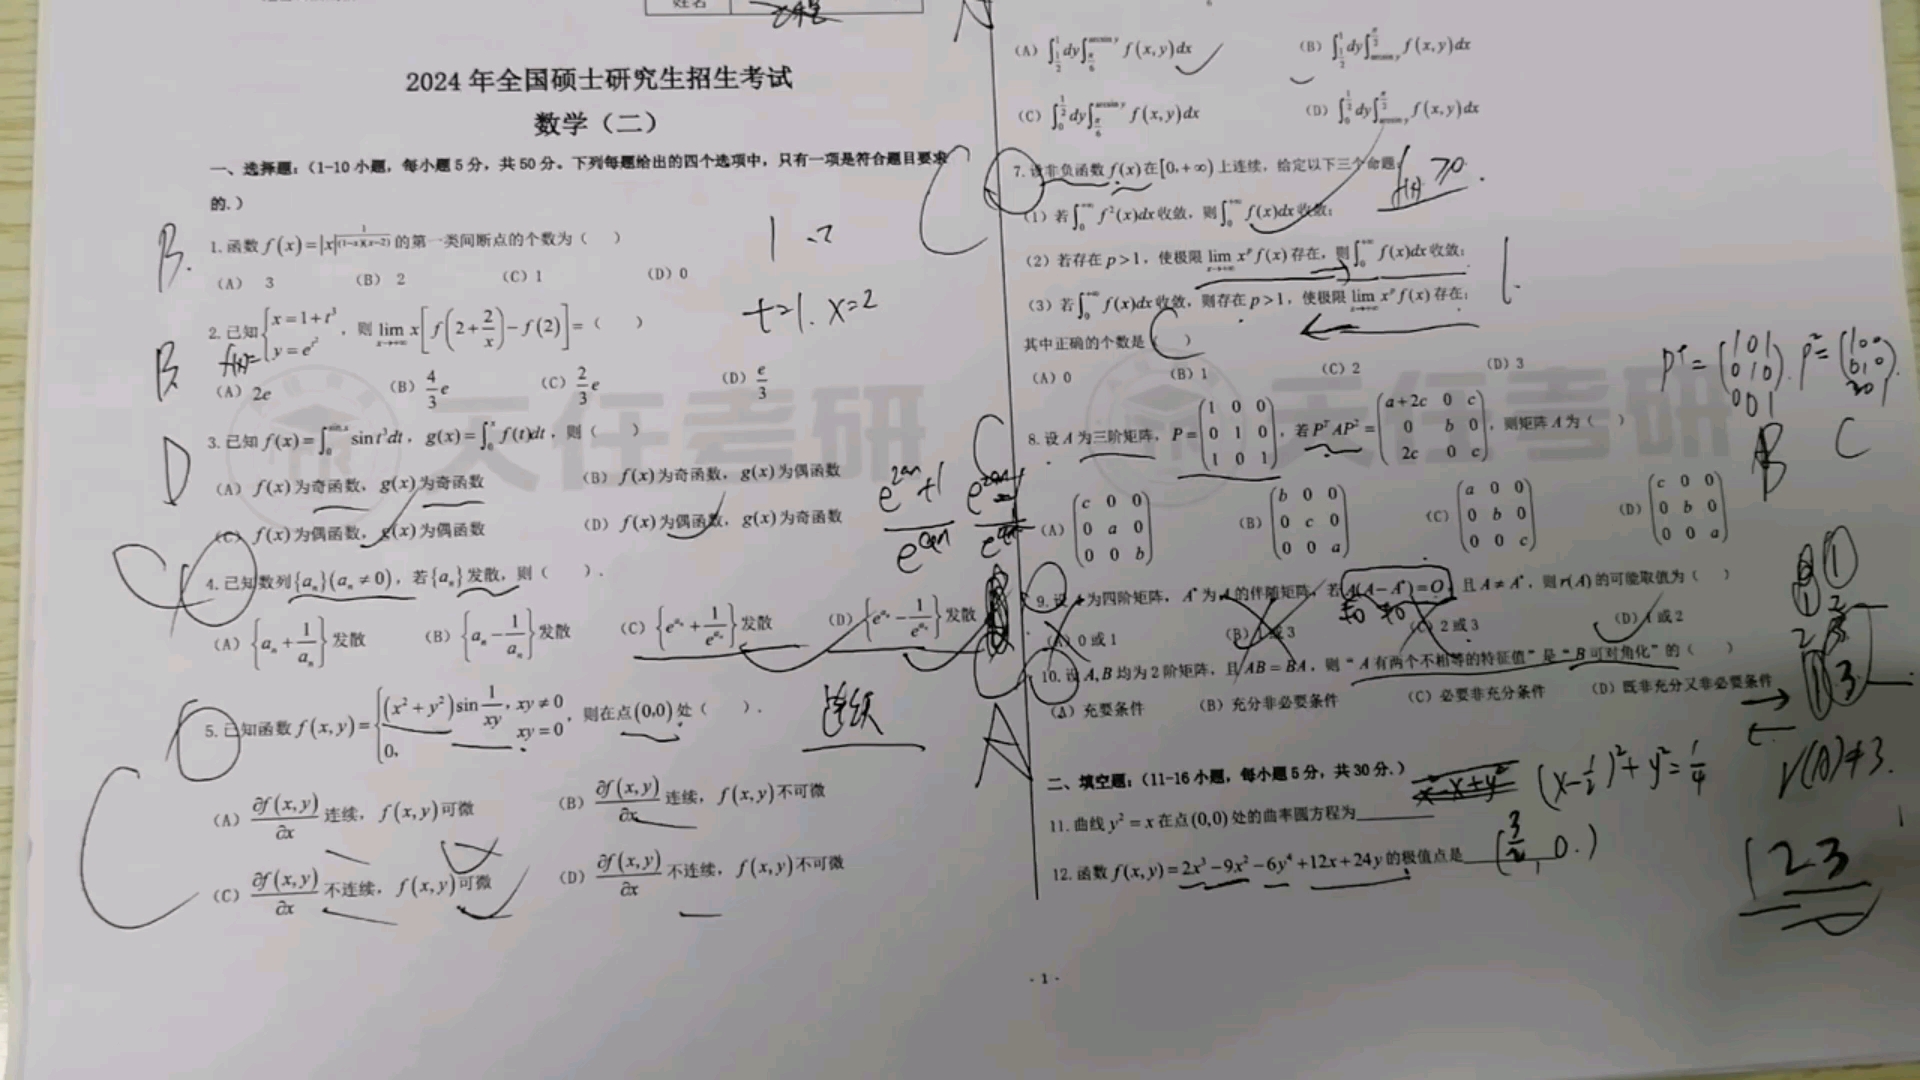 姓名
2024 年全国硕士研究生招生考试
数学（二）
一、选择题：（1-10 小题，每小题 5 分，共 50 分。下列每题给出的四个选项中，只有一项是符合题目要求
的.）
B.
1.函数 f(x)=|x|^{1/((1-x)(x-2))} 的第一类间断点的个数为（ ）
1 .2
（A） 3 （B） 2 （C）1 （D）0
t=1. x=2
2.已知 {x=1+t³, y=e^{t²}，则 lim_{x→+∞} x[f(2+2/x)-f(2)]=（ ）
B.
f(x)=
（A）2e （B）4/3 e （C）2/3 e （D）e/3
天任考研
3.已知 f(x)=∫_0^{sin x} sin t³dt，g(x)=∫_0^x f(t)dt，则（ ）
D
（A）f(x)为奇函数，g(x)为奇函数 （B）f(x)为奇函数，g(x)为偶函数
（C）f(x)为偶函数，g(x)为偶函数 （D）f(x)为偶函数，g(x)为奇函数
4.已知数列{aₙ}(aₙ≠0)，若{aₙ}发散，则（ ）.
（A）{aₙ+1/aₙ}发散 （B）{aₙ-1/aₙ}发散 （C）{e^{aₙ}+1/e^{aₙ}}发散 （D）{e^{aₙ}-1/e^{aₙ}}发散
5.已知函数 f(x,y)={(x²+y²)sin 1/xy, xy≠0; 0, xy=0，则在点(0,0)处（ ）.
连续
C
（A）∂f(x,y)/∂x 连续，f(x,y)可微 （B）∂f(x,y)/∂x 连续，f(x,y)不可微
（C）∂f(x,y)/∂x 不连续，f(x,y)可微 （D）∂f(x,y)/∂x 不连续，f(x,y)不可微
A
（A）∫_{1/2}^1 dy∫_{π/6}^{arcsin y} f(x,y)dx （B）∫_{1/2}^1 dy∫_{arcsin y}^{π/2} f(x,y)dx
（C）∫_0^{1/2} dy∫_{π/6}^{arcsin y} f(x,y)dx （D）∫_0^{1/2} dy∫_{arcsin y}^{π/2} f(x,y)dx
C
7.设非负函数 f(x)在[0,+∞)上连续，给定以下三个命题：
f(x)≥0.
（1）若∫_0^{+∞} f²(x)dx收敛，则∫_0^{+∞} f(x)dx收敛；
（2）若存在 p>1，使极限 lim_{x→+∞} x^p f(x)存在，则∫_0^{+∞} f(x)dx收敛；
（3）若∫_0^{+∞} f(x)dx收敛，则存在 p>1，使极限 lim_{x→+∞} x^p f(x)存在；
其中正确的个数是（ ）
（A）0 （B）1 （C）2 （D）3
天任考研
8.设 A 为三阶矩阵，P=(1 0 0; 0 1 0; 1 0 1)，若 PᵀAP²=(a+2c 0 c; 0 b 0; 2c 0 c)，则矩阵 A 为（ ）
Pᵀ=(1 0 1; 0 1 0; 0 0 1). P²=(1 0 0; 0 1 0; 2 0 1).
C
（A）(c 0 0; 0 a 0; 0 0 b) （B）(b 0 0; 0 c 0; 0 0 a) （C）(a 0 0; 0 b 0; 0 0 c) （D）(c 0 0; 0 b 0; 0 0 a)
9.设 A 为四阶矩阵，A*为 A 的伴随矩阵，若 A(A-A*)=O，且 A≠A*，则 r(A)的可能取值为（ ）
（A）0 或 1 （B）1 或 3 （C）2 或 3 （D）1 或 2
10.设 A,B 均为 2 阶矩阵，且 AB=BA，则“A 有两个不相等的特征值”是“B 可对角化”的（ ）
（A）充要条件 （B）充分非必要条件 （C）必要非充分条件 （D）既非充分又非必要条件
A
二、填空题：（11-16 小题，每小题 5 分，共 30 分.）
11.曲线 y²=x 在点(0,0)处的曲率圆方程为
(x-1/2)²+y²=1/4
r(A)≠3.
12.函数 f(x,y)=2x³-9x²-6y⁴+12x+24y 的极值点是
123
- 1 -